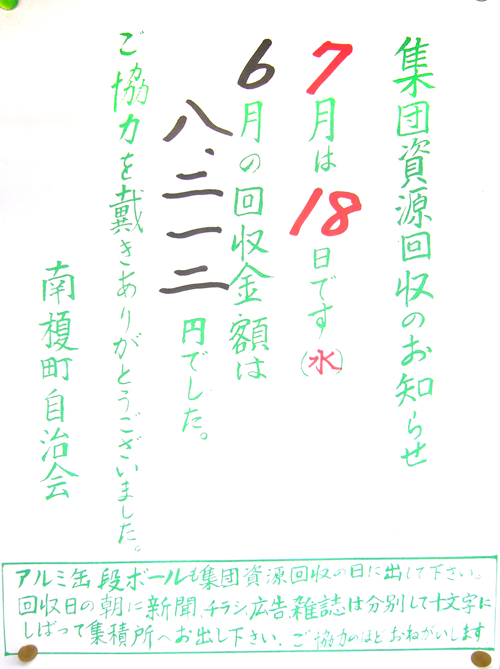 集団資源回収のお知らせ
7月は18日です(水)
6月の回収金額は
八、二一二円でした。
ご協力を戴きありがとうございました。
南榎町自治会
アルミ缶段ボールも集団資源回収の日に出して下さい。
回収日の朝に新聞、チラシ、広告、雑誌は分別して十文字に
しばって集積所へお出し下さい。ご協力のほどおねがいします